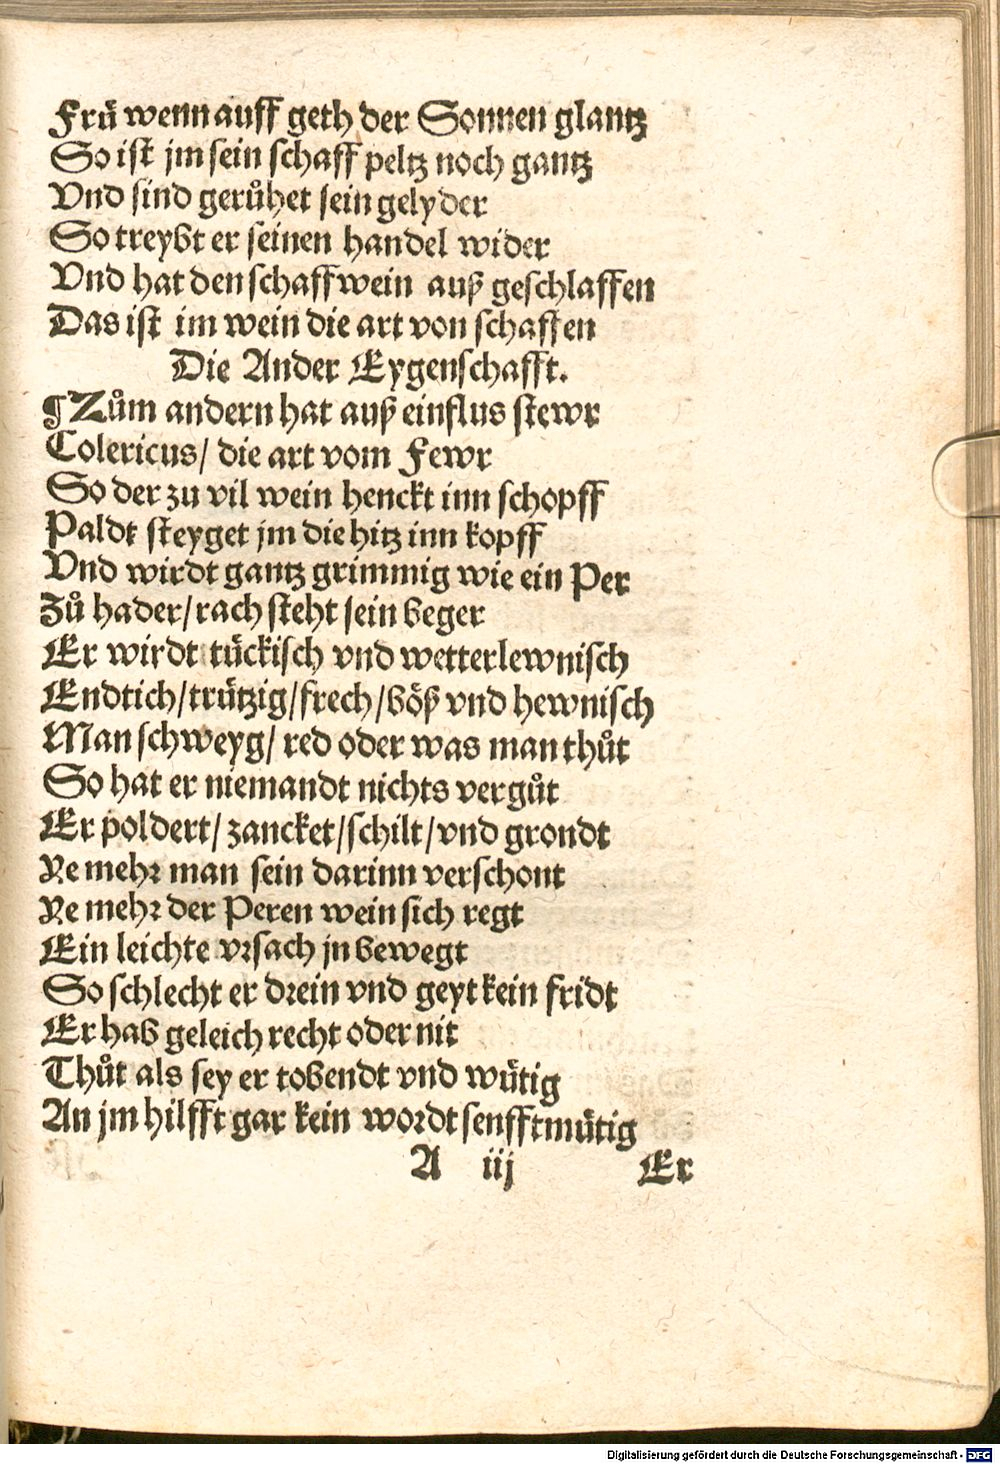 Fruͤ wenn auff geth der Sonnen glantz
So ist jm sein schaff peltz noch gantz
Vnd sind geruͦhet sein gelyder
So treybt er seinen handel wider
Vnd hat den schaffwein auß geschlaffen
Das ist im wein die art von schaffen
Die Ander Eygenschafft.
¶ Zuͦm andern hat auß einflus stewr
Colericus/ die art vom Fewr
So der zu vil wein henckt inn schopff
Paldt steyget jm die hitz inn kopff
Vnd wirdt gantz grimmig wie ein Per
Zuͦ hader/ rach steht sein beger
Er wirdt tuͤckisch vnd wetterlewnisch
Endtich/ truͤtzig/ frech/ boͤß vnd hewnisch
Man schweyg/ red oder was man thuͦt
So hat er niemandt nichts verguͦt
Er poldert/ zancket/ schilt/ vnd grondt
Ye mehr man sein darinn verschont
Ye mehr der Peren wein sich regt
Ein leichte vrsach jn bewegt
So schlecht er drein vnd geyt kein fridt
Er hab geleich recht oder nit
Thuͦt als sey er tobendt vnd wuͤtig
An jm hilfft gar kein wordt senfftmuͤtig
A iij Er
Digitalisierung gefördert durch die Deutsche Forschungsgemeinschaft - DFG